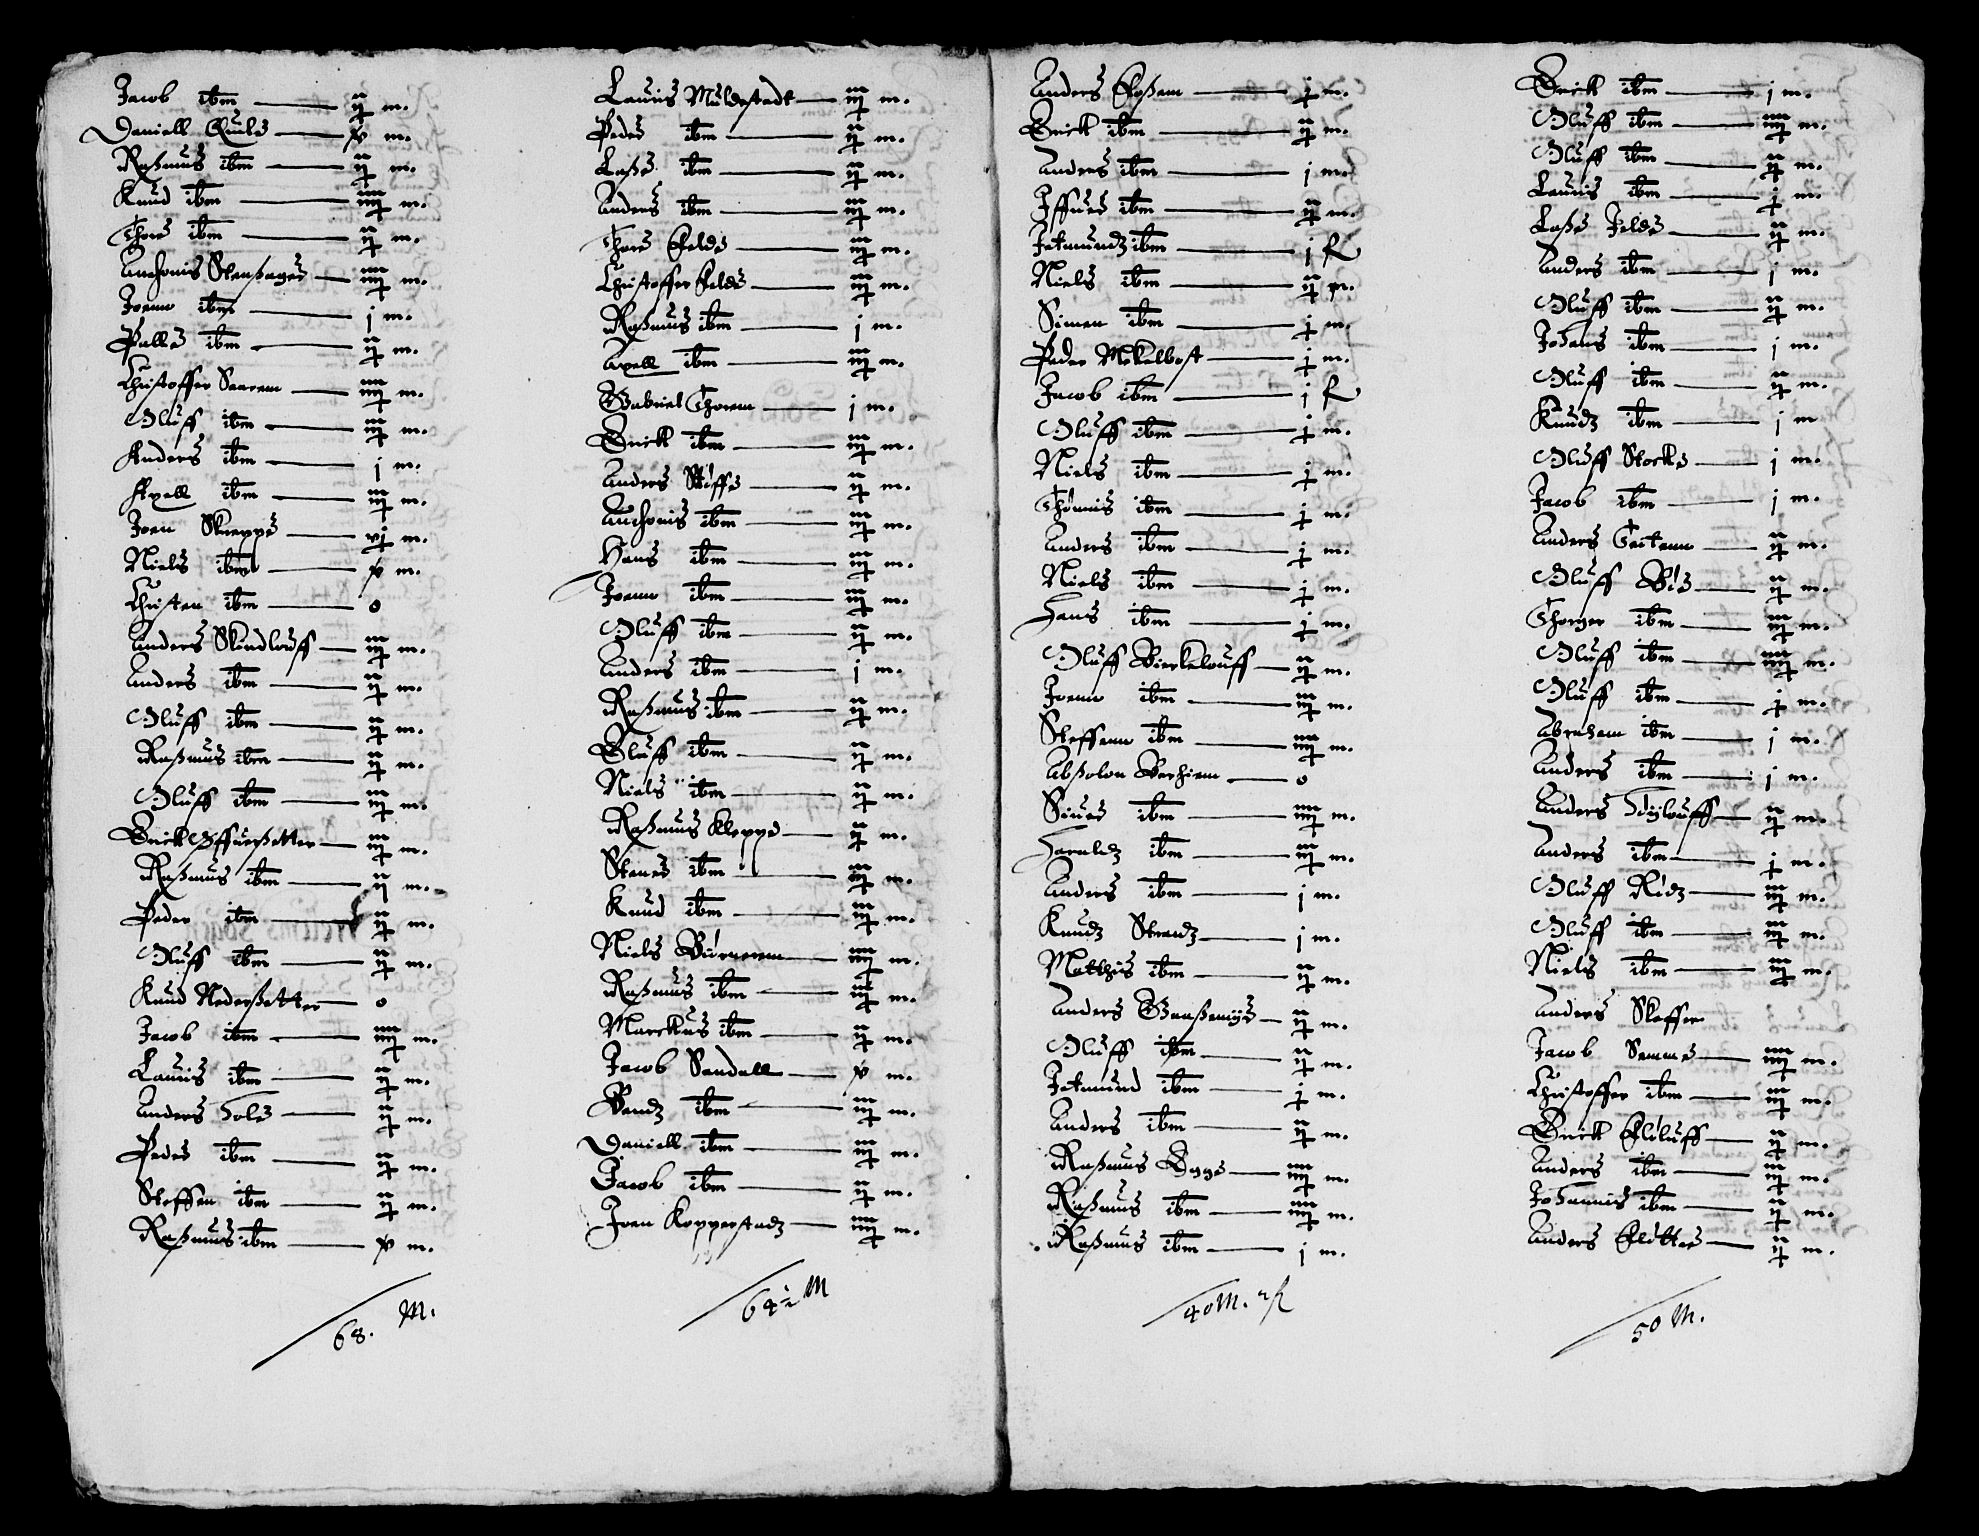 Jacob ibm — ij m.
Daniell Quile — v m.
Rasmus ibm — ij m.
Knud ibm — iiij m.
Thore ibm — ij m.
Anthonis — iiij m.
Joenn ibm — j m.
Palle ibm — ij m.
Christoffer Saarem — iiij m.
Oluff ibm — iij m.
Anders ibm — j m.
Axell ibm — iij m.
Joen Skieppe — vj m.
Niels ibm — v m.
Christen ibm — o
Anders Skindlouff — iij m.
Anders ibm — ij m.
Oluff ibm — ij m.
Rasmus ibm — ij m.
Oluff ibm — iij m.
Erick — iij m.
Rasmus ibm — ij m.
Peder ibm — ij m.
Oluff ibm — ij m.
Knud Nedersetter — o
Jacob ibm — iiij m.
Lauris ibm — ij m.
Anders Hole — ij m.
Peder ibm — ij m.
Steffen ibm — ij m.
Rasmus ibm — v m.
68. M.
Lauris Muldestadt — iij m.
Peder ibm — ij m.
Lasse ibm — ij m.
Anders ibm — iij m.
Thore Elde — iij m.
Christoffer Elde — iij m.
Rasmus ibm — j m.
Axell ibm — iij m.
Gabriel Thorem — j m.
Erick ibm — iij m.
Anders Støffe — ij m.
Anthonis ibm — iij m.
Hans ibm — iij m.
Joenn ibm — iij m.
Oluff ibm — ij m.
Anders ibm — j m.
Rasmus ibm — ij m.
Oluff ibm — ij m.
Niels ibm — ij m.
Rasmus Kleppe — ij m.
Stene ibm — iij m.
Knud ibm — iij m.
Niels — iiij m.
Rasmus ibm — iij m.
Marckus ibm — ij m.
Jacob Sandall — v m.
Bendz ibm — iij m.
Daniell ibm — iij m.
Jacob ibm — ij m.
Joen Kopperstadz — iiij m.
64½ M
Anders — j m.
Erick ibm — ij m.
Anders ibm — j m.
Iffuer ibm — ij m.
Jetmundz ibm — j R
Niels ibm — ij m.
Simen ibm — j m.
Peder Mekelbost — j m.
Jacob ibm — j R
Oluff ibm — j m.
Niels ibm — j m.
Thønnis ibm — j m.
Anders ibm — j m.
Niels ibm — j m.
Hans ibm — j m.
Oluff Birkelouff — ij m.
Joenn ibm — iij m.
Steffenn ibm — iiij m.
Absolon — o
Siuer ibm — iiij m.
Haraldz ibm — iij m.
Anders ibm — j m.
Knudz Strandz — j m.
Matthis ibm — ij m.
Anders — ij m.
Oluff ibm — ij m.
Jetmund ibm — j m.
Anders ibm — ij m.
Rasmus Egge — iiij m.
Rasmus ibm — iiij m.
Rasmus ibm — j m.
40 M. 2 R
Erick ibm — j m.
Oluff ibm — iiij m.
Oluff ibm — ij m.
Lauris ibm — j m.
Lasse Felde — ij m.
Anders ibm — j m.
Oluff ibm — ij m.
Johans ibm — j m.
Oluff ibm — ij m.
Knudz ibm — j m
Oluff Stocke — j m.
Jacob ibm — j m.
Anders — ij m.
Oluff — ij m.
Thorger ibm — iij m.
Oluff ibm — iiij m.
Oluff ibm — j m.
Abraham ibm — j m.
Anders ibm — j m.
Anders — ij m.
Anders ibm — j m.
Oluff — iij m.
Oluff ibm — iij m.
Niels ibm — iij m.
Anders Skeffer
Jacob Semme — iiij m.
Christoffer ibm — iij m.
Erick — ij m.
Anders ibm — iij m.
Johannis ibm — ij m.
Anders Flotte — ij m.
50 M.